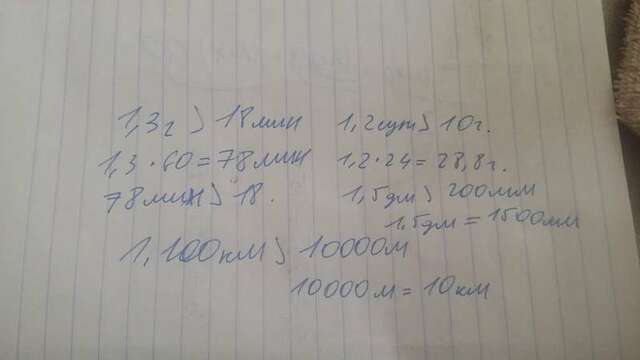 1,3г > 18мин
1,3 · 60 = 78мин
78мин > 18.
1,2сут > 10г.
1,2 · 24 = 28,8г.
1,5дм > 200мм
1,5дм = 1500мм
1,100км > 10000м
10000м = 10км